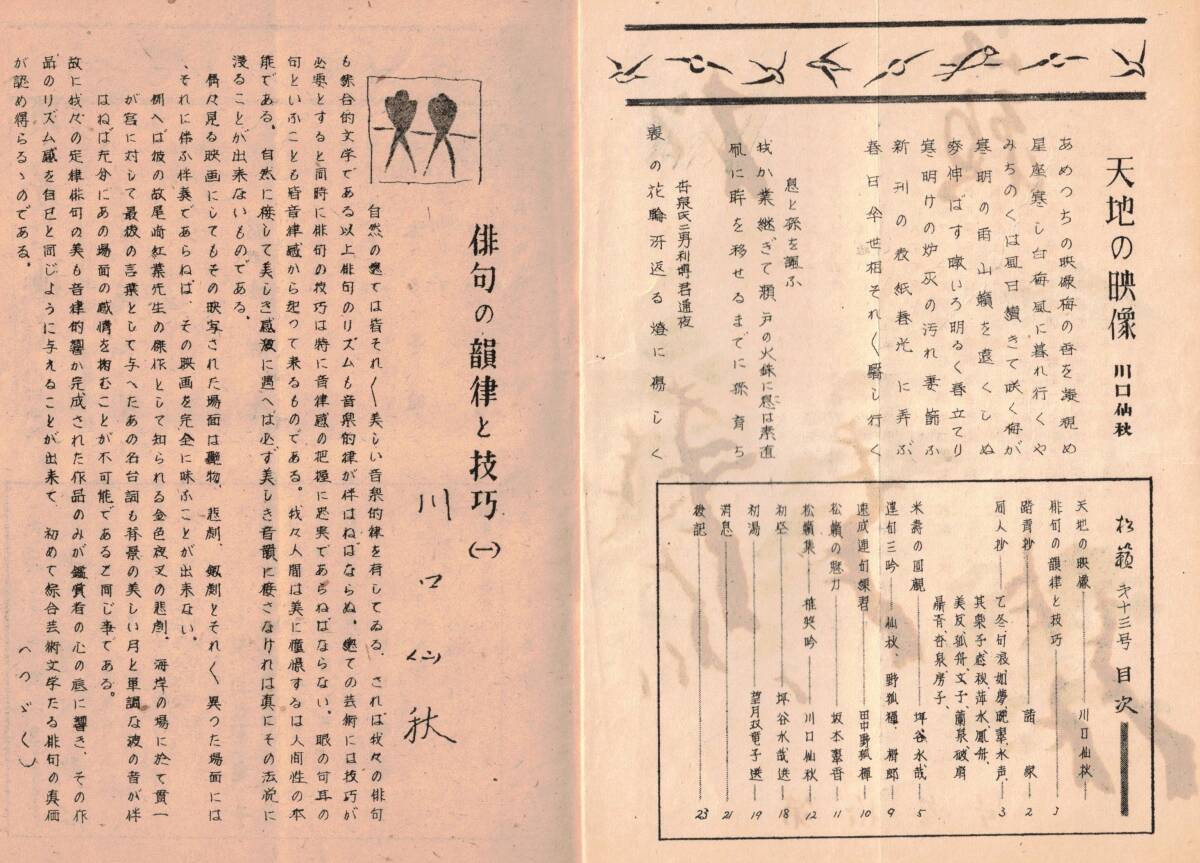 天地の映像
川口仙秋
あめつちの映像梅の香を凝視め
星座寒し白梅風に暮れ行くや
みちのくは風日蠻きて咲く梅が
寒明の雨山籟を遠くしぬ
麥伸ばす暾いろ明るく春立てり
寒明けの炉灰の汚れ妻篩ふ
新刊の数紙春光に弄ぶ
春日傘世相それ〳〵曆し行く
息と孫を謳ふ
我か業継ぎて瀬戸の火銖に息は素直
瓜に眸を移せるまでに孫育ち
杏泉氏二男利博君通夜
喪の花輪冴返る燈に傷しく
松籟 才十三号 目次
天地の映像 川口仙秋 1
俳句の韻律と技巧
踏青抄 諸家 2
同人抄 3
乙冬句報、如夢、晩翠、水声、
其槃子、悲秋、萍水、鳳舟、
美反、狐舟、文子、蘭泉、破扇
帚青、杏泉、房子、
米壽の回顧 坪谷水哉 5
連句三吟 仙秋、野狐禪、柳郎 9
速成連句練習 田中野狐禪 10
松籟の魅力 坂本翠香 11
松籟集 雑煑吟 川口仙秋 12
初空 坪谷水哉選 18
初湯 望月双童子選 19
消息 21
後記 23
俳句の韻律と技巧 (一)
川口仙秋
自然の凡ては皆それ〳〵美しい音楽的律を有してゐる、されば我々の俳句
も綜合的文学である以上俳句のリズムも音楽的律が伴はねばならぬ。凡ての芸術には技巧が
必要とすると同時に俳句の技巧は特に音律感の把握に忠実であらねばならない。眼の句耳の
句といふことも皆音律感から起つて来るものである。我々人間は美に憧憬するは人間性の本
能である。自然に接して美しさ感激に遇へは必ず美しき音韻に接さなければ真にその法悦に
浸ることが出来ないものである。
偶々見る映画にしてもその映写された場面は艶物、悲劇、剱劇とそれ〳〵異つた場面には
、それに伴ふ伴奏であらねば、その映画を完全に味ふことが出来ない。
例へば彼の故尾崎紅葉先生の傑作として知られる金色夜叉の悲劇、海岸の場に於て貫一
が宮に対して最後の言葉として与へたあの名台詞も背景の美しい月と単調な波の音が伴
はねば充分にあの場面の感情を掴むことが不可能であると同じ事である。
故に我々の定律俳句の美も音律的響か完成された作品のみが鑑賞者の心の底に響き、その作
品のリズム感を自己と同じように与えることが出来て、初めて綜合芸術文学たる俳句の真価
が認め得らるゝのである。
(つゞく)